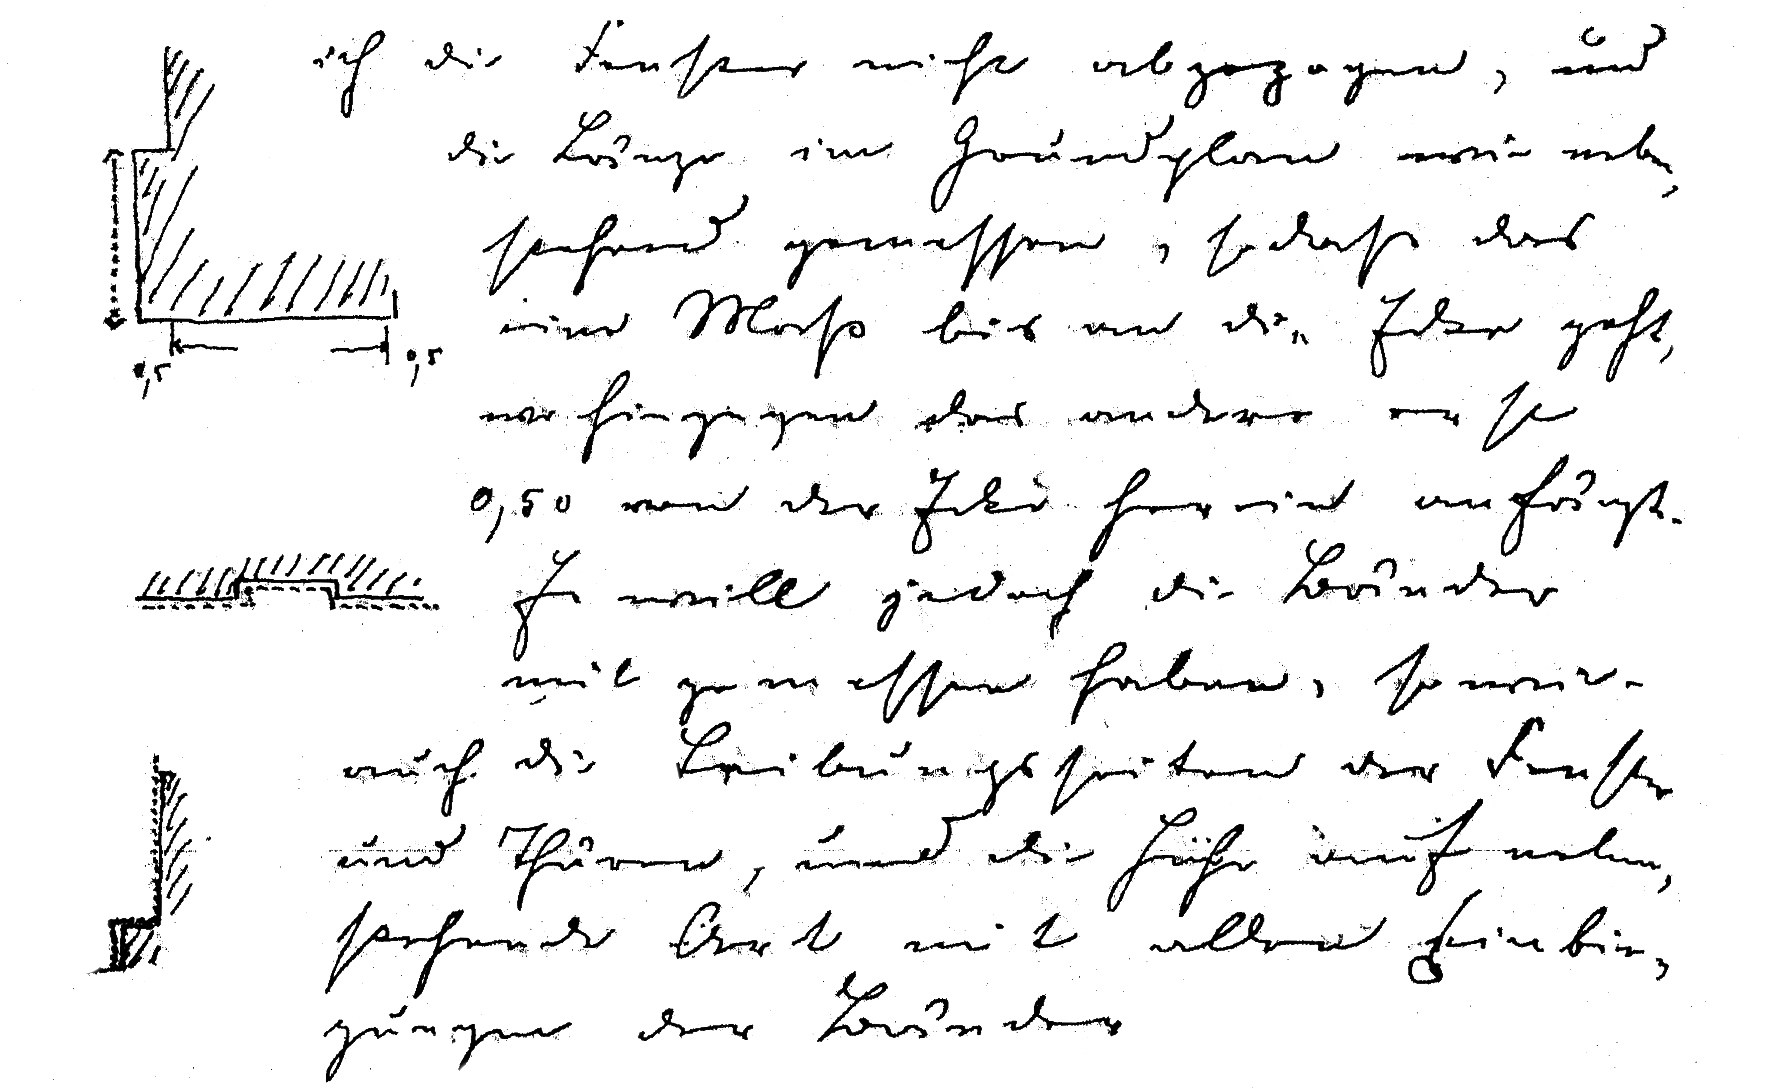 ich die Fenster nicht abgezogen, und
die Länge im Grundplan wie neben,
stehend gemessen, sodaß das
eine Maß bis an die Ecke geht,
wohingegen das andere erst
0,50 von der Ecke herein anfängt.
0,5 0,5
Er will jedoch die Bänder
mit gemessen haben, sowie
auch die Leibungsseiten der Fenster
und Thüren, und die Höhe auf neben,
stehende Art mit allen Einbie,
gungen der Bänder